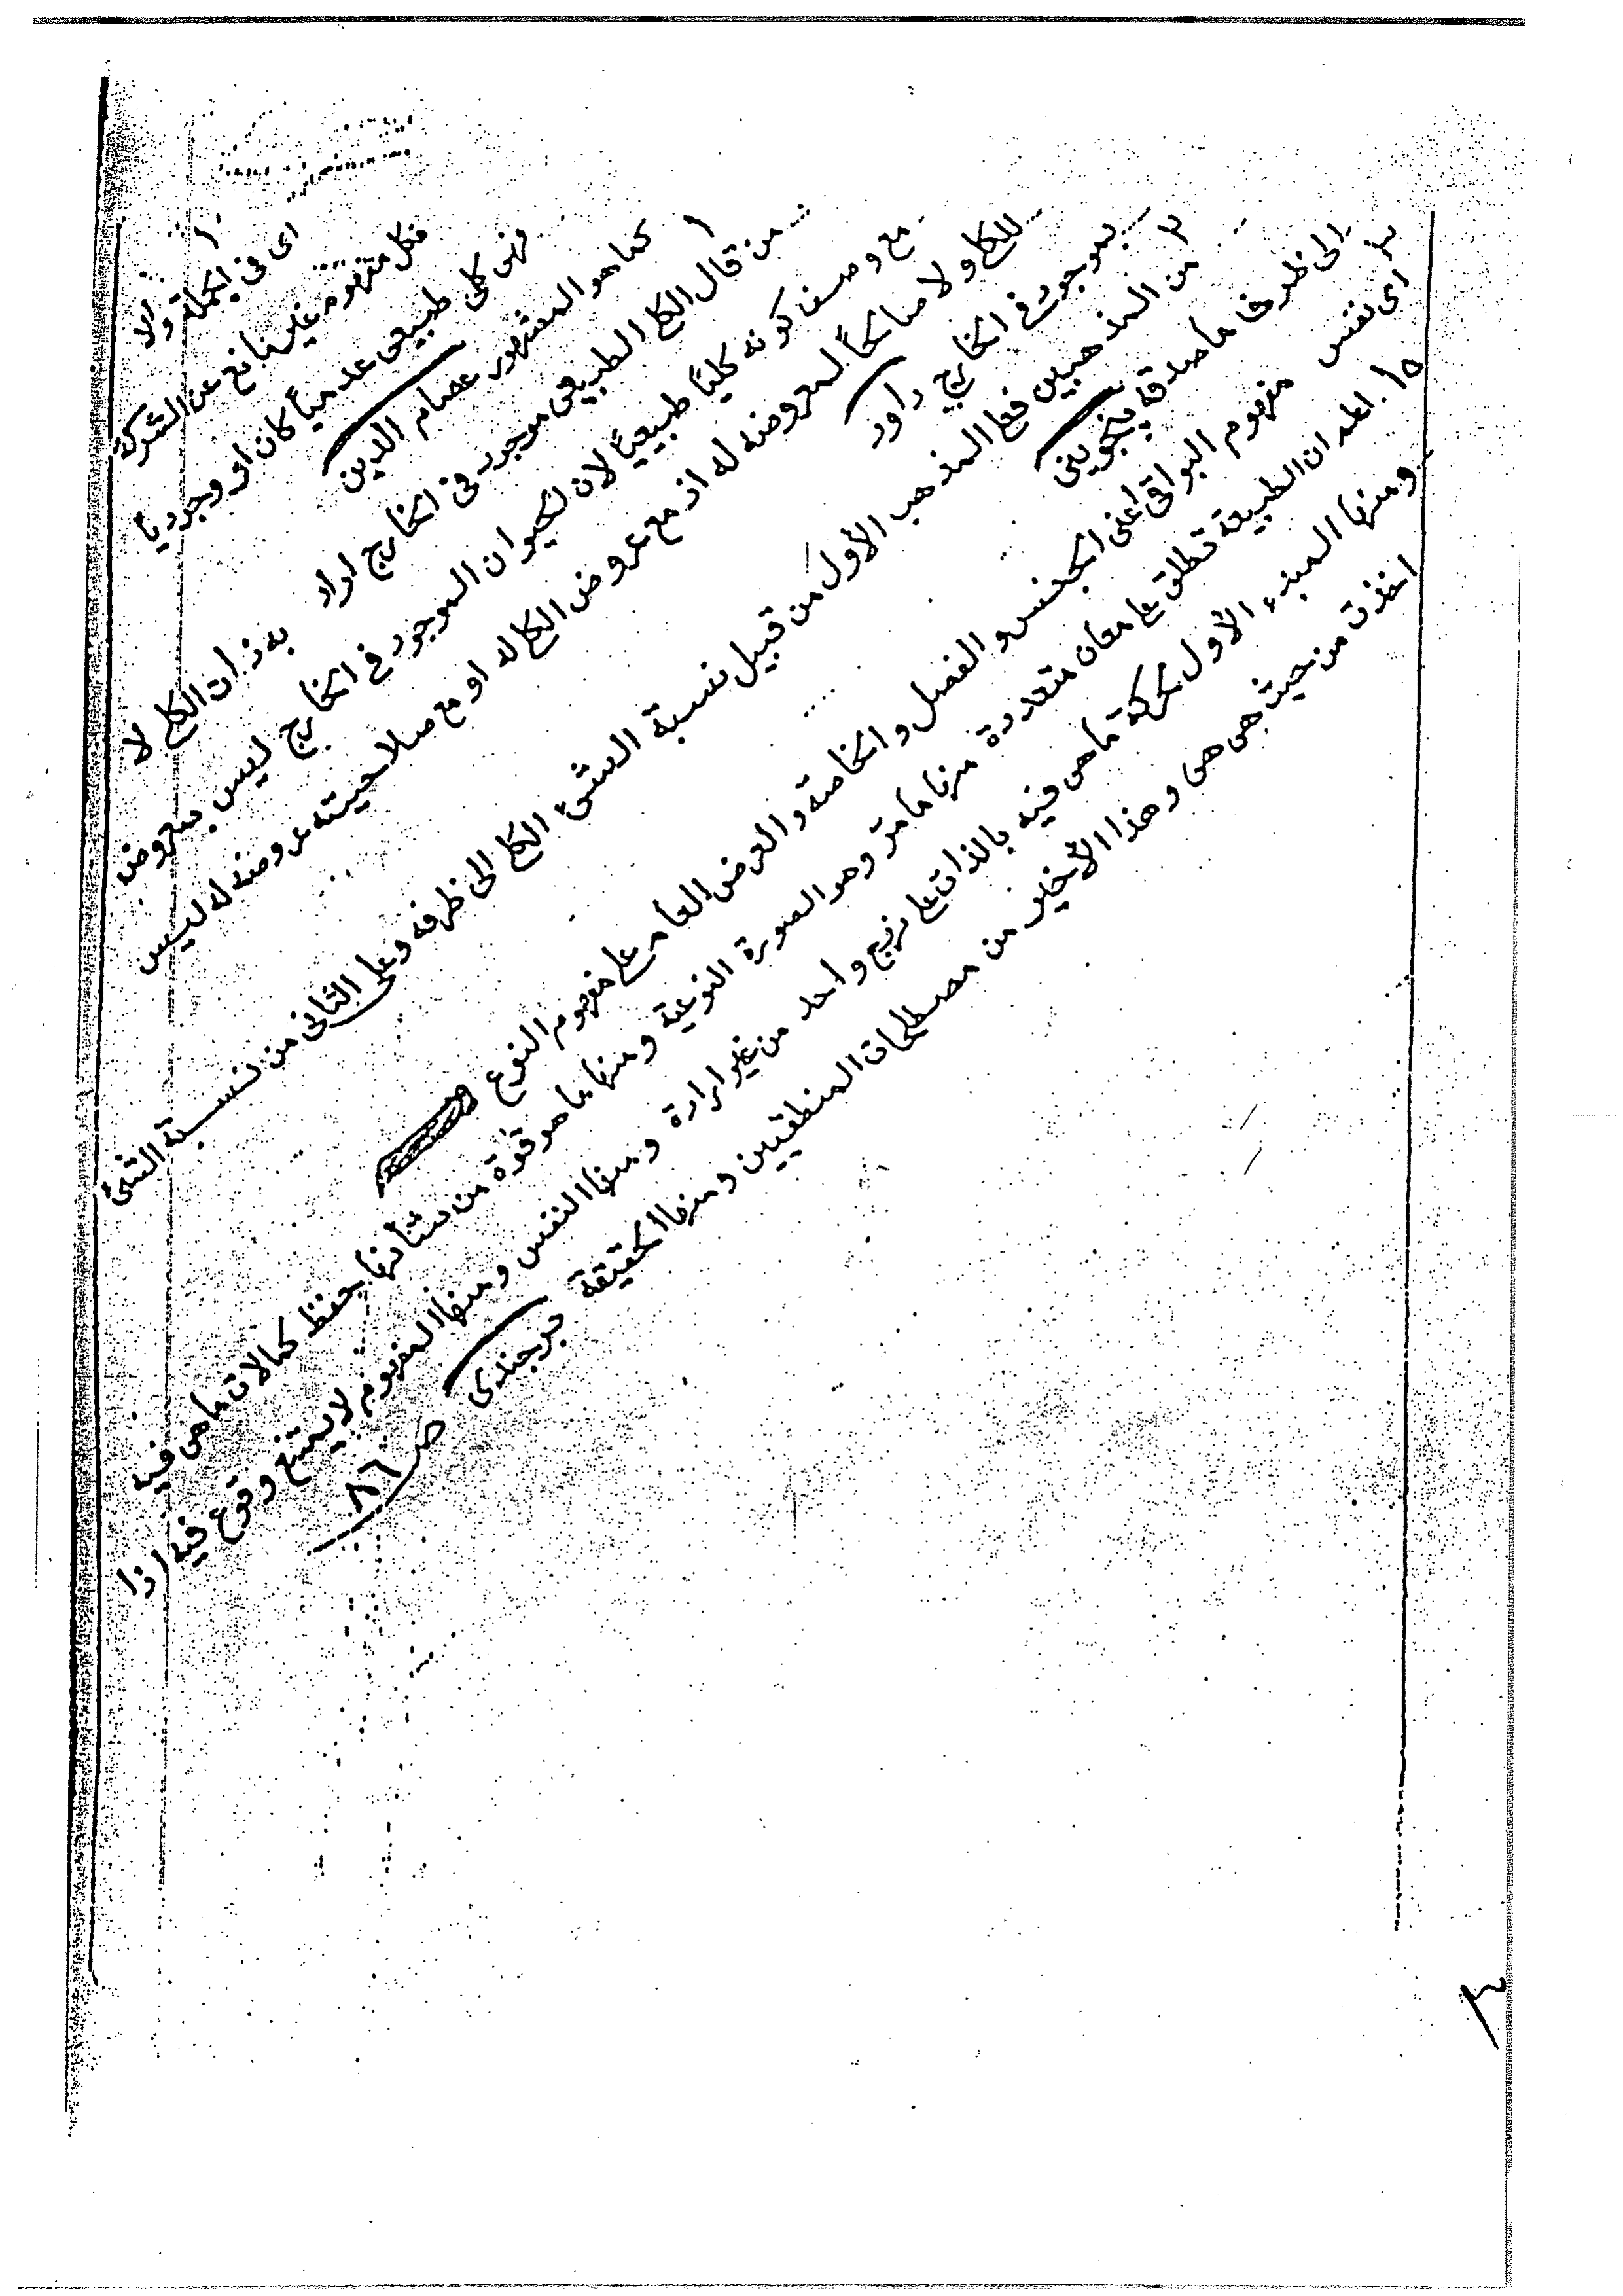 اى فى الجملة والا
فكل مفهوم غير مانع عن الشركة
فهى كلى طبيعى عدمياً كان او وجودياً
كما هو المشهور عصام الدين
١
من قال الكلى الطبيعى موجود فى الخارج اراد به ذات الكلى لا
مع وصف كونه كلياً طبيعياً لان الحيوان الموجود فى الخارج ليس بمعروض
للكلى ولا صالحاً لمعروضه له اذ مع عروض الكلى له او مع صلاحيته عروضه له ليس
بموجود فى الخارج داود
٢
من المذهبين فعلى المذهب الأول من قبيل نسبة الشئ الكلى الى ظرفه وعلى الثانى من نسبة الشئ
الى ظرف ما صدقه پنجوينى
٣
اى نفس مفهوم البواقى اعنى الجنس والفصل والخاصة والعرض العام على مفهوم النوع
١٥ اعلم ان الطبيعة تطلق على معان متعددة منها ما مر وهو الصورة النوعية ومنها ما هو قوة من شأنها حفظ كمالات ما هى فيه
ومنها المبدء الأول لحركة ما هى فيه بالذات على نهج واحد من غير ارادة ومنها النفس ومنها المفهوم لا يمتنع وقوع فيه اذا
اخذت من حيث هى هى وهذا الأخير من مصطلحات المنطقيين ومنها الحقيقة برجندى
صـ ٨٦